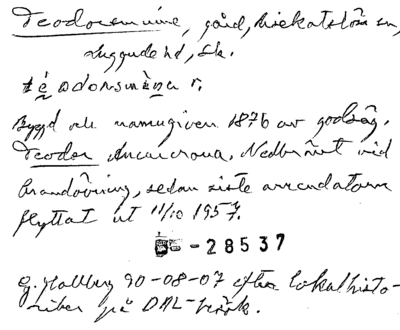 Teodorsminne, gård, Risekatslösa sn,
Luggude hd, Sk.
té adorsmìna r.
Byggd och namngiven 1876 av godsäg.
Teodor Ancarcrona. Nedbränt vid
brandövning, sedan siste arrendatorn
flyttat ut 11/10 1957.
-28537
G. Hallberg 90-08-07 efter lokalhisto-
riker på DAL-besök.